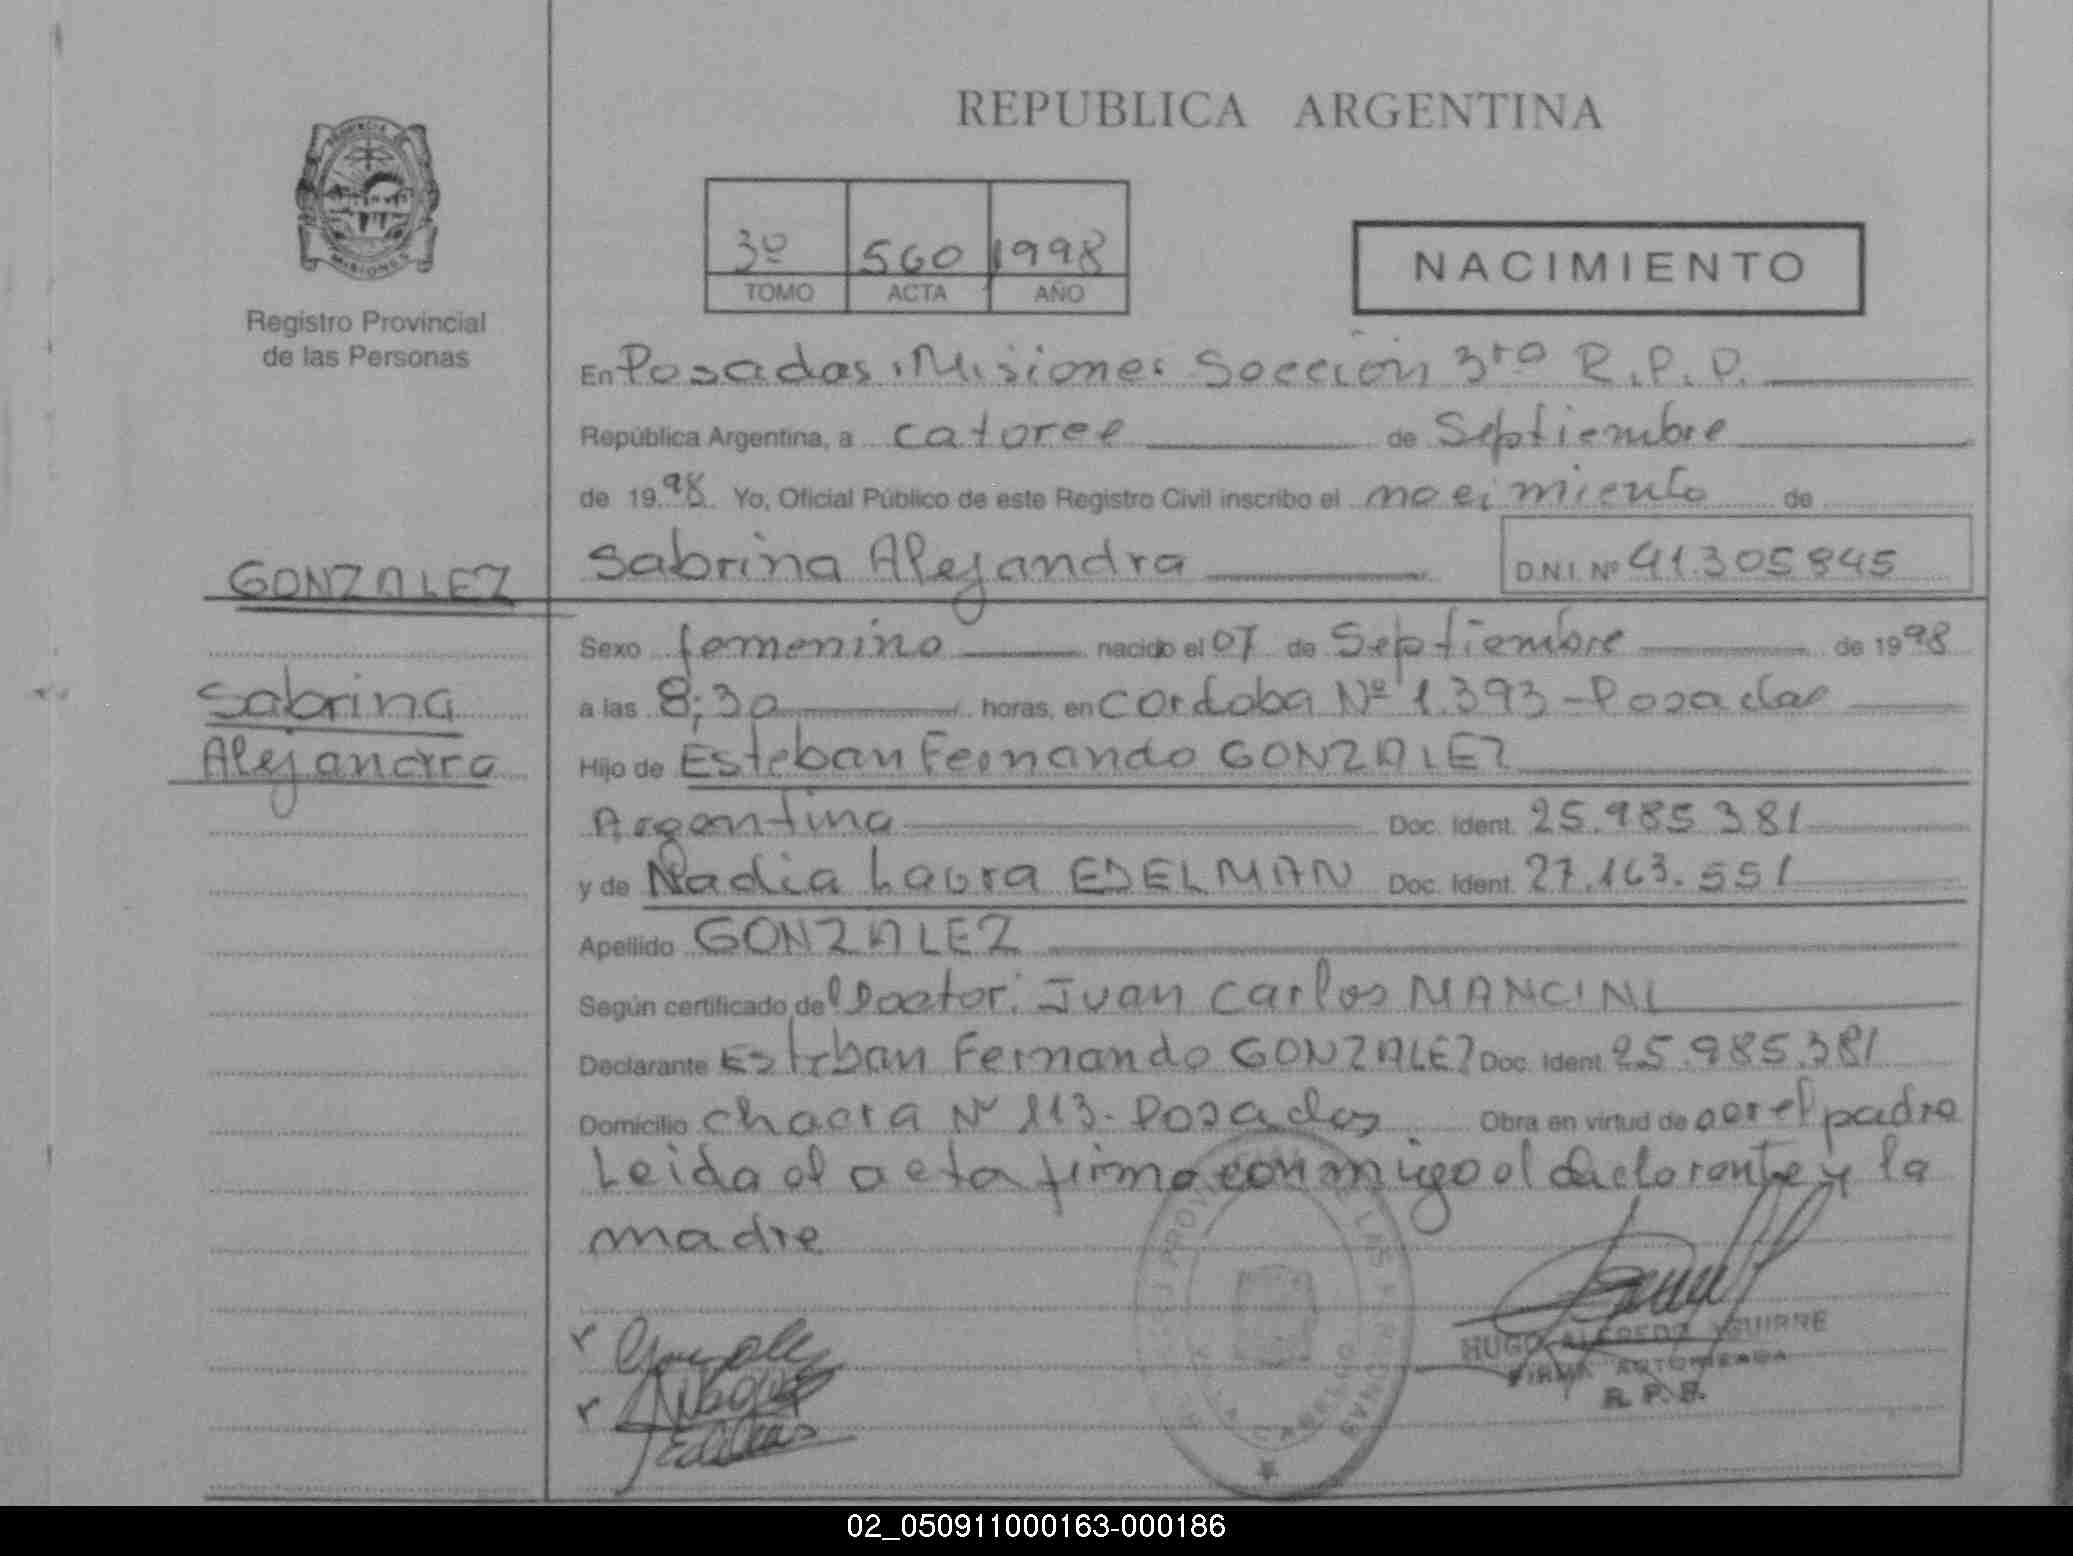 REPUBLICA ARGENTINA
PROVINCIA DE
MISIONES
Registro Provincial
de las Personas
3º 560 1998
TOMO ACTA AÑO
NACIMIENTO
En Posadas, Misiones Sección 3ra R.P.P.
República Argentina, a catorce de Septiembre
de 1998 Yo, Oficial Público de este Registro Civil inscribo el nacimiento de
Sabrina Alejandra D.N.I. Nº 41.305.845
GONZALEZ
Sabrina
Alejandra
Sexo femenino nacido el 07 de Septiembre de 1998
a las 8:30 horas, en Cordoba Nº 1.393 - Posadas
Hijo de Esteban Fernando GONZALEZ
Argentina Doc. Ident. 25.985.381
y de Nadia Laura EDELMAN Doc. Ident. 27.163.551
Apellido GONZALEZ
Según certificado del Doctor: Juan Carlos MANCINI
Declarante Esteban Fernando GONZALEZ Doc. Ident. 25.985.381
Domicilio chacra Nº 113 - Posadas Obra en virtud de ser el padre
Leida el acta firma conmigo el declarante y la
madre
HUGO ALFREDO AGUIRRE
FIRMA AUTORIZADA
R. P. P.
02_050911000163-000186